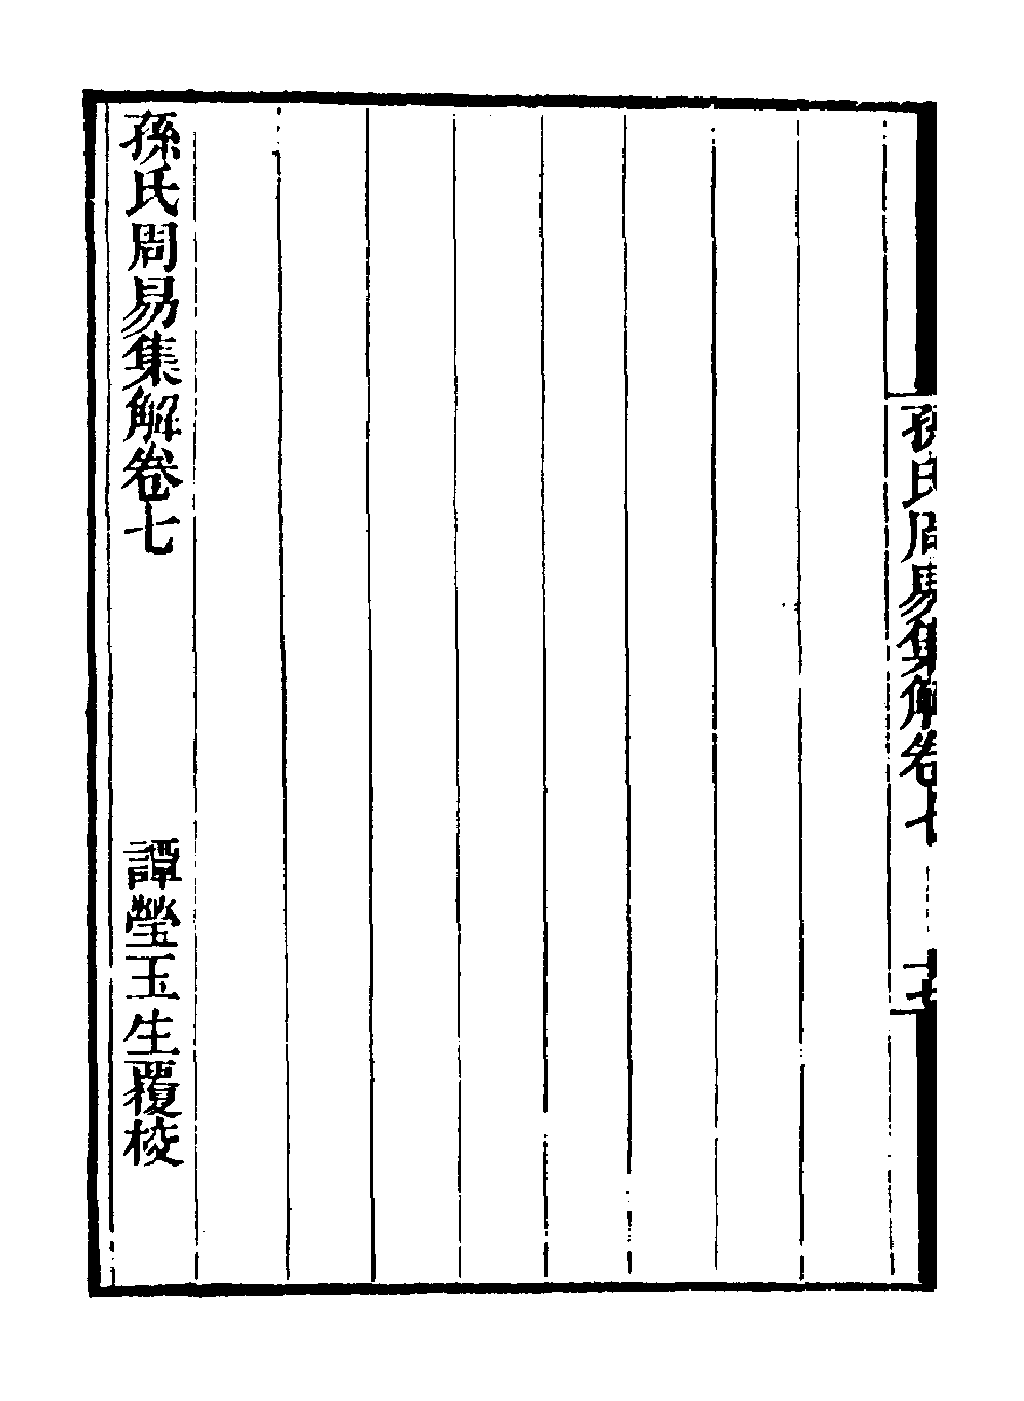 孫氏周易集解卷七
孫氏周易集解卷七　譚瑩玉生覆校